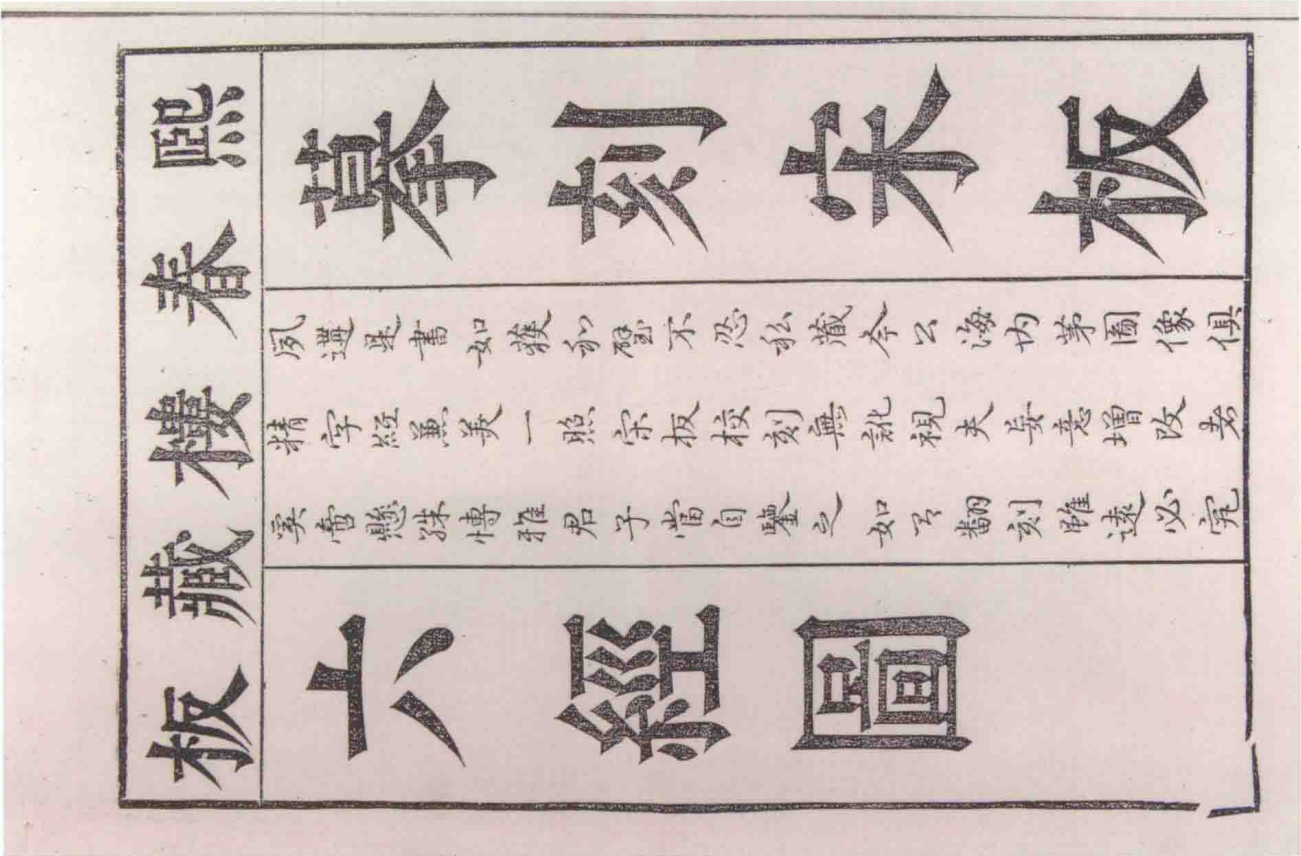 熙春樓藏板
摹刻宋板
夙遘是書如獲和璧不忍私藏今公海内苐圖像俱
精字紙兼美一照宋板校刻無訛視夫妄意增改者
奚啻懸殊博雅君子當自鑒之如有翻刻雖遠必究
六經圖